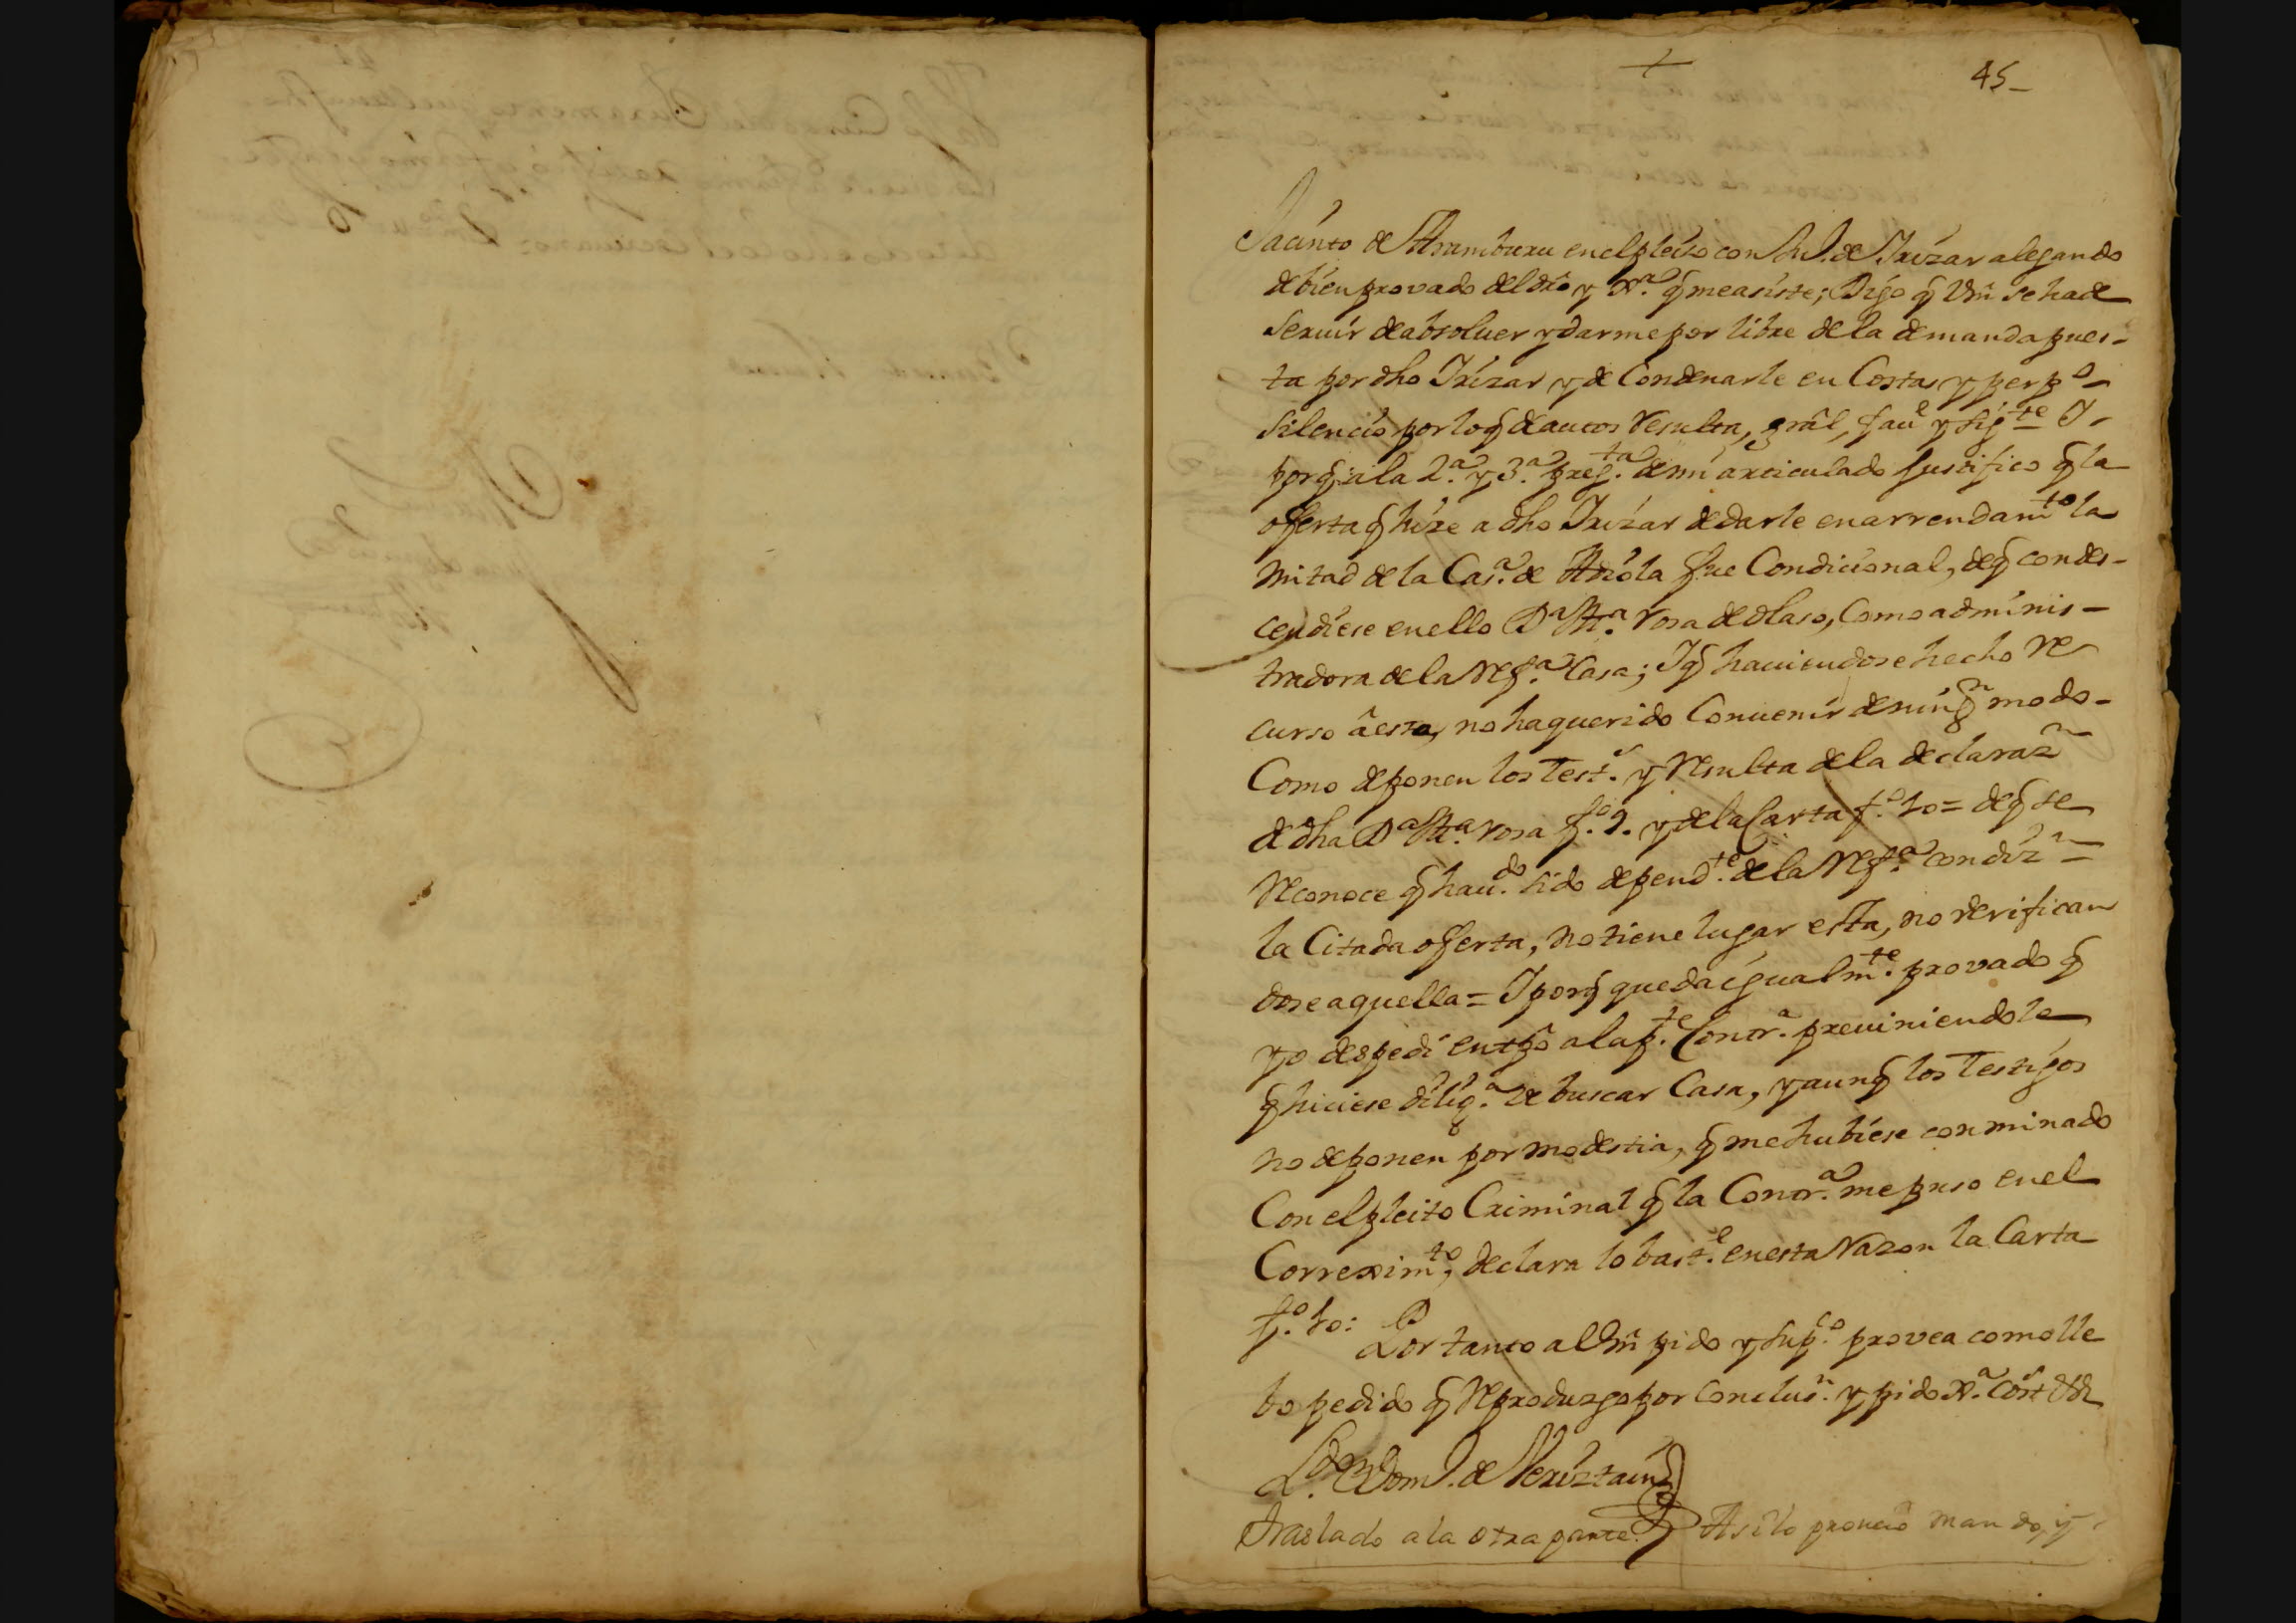 45
Jacinto de Aramburu en el pleito con Ju. de Irizar alegando
de bien provado del dro y Xa. q̃ me asiste; Digo q̃ Vm̃ se ha de
servir de absoluer y darme por libre de la demanda pues-
ta por dho Irizar y de Condenarle en Costas y perpo-
silencio por lo q̃ de autos Resulta, gral, fauel y sigte I
porq̃ a la 2.a y 3.a preg.ta de mi articulado justifico q̃ la
offerta q̃ hize a dho Irizar de darle en arrendam.to la
mitad de la Cas.a de Ariola fue Condicional, de q̃ condes-
cendiese en ello Da Ma. rosa de olaso, Como adminis-
tradora de la Refa. Casa; I q̃ haviendose hecho Re
curso â esta, no ha querido Convenir de ning.n modo-
Como deponen los Test.s y Resulta de la declarazn
de dha Da Ma. rosa fo. 9. y de la Carta fo. 10= de q̃ se
Reconoce q̃ hau.do sido depend.te de la Refa. condizn
la Citada offerta, no tiene lugar esta, no verifican
dose aquella= I porq̃ queda igualm.te provado q̃
yo despedi en tpo a la p.te Contr.a previniendole
q̃ hiciese dilig.a de buscar Casa, y aunq̃ los Testigos
no deponen por modestia, q̃ me hubiese conminado
Con el pleito Criminal q̃ la Contr.a me puso en el
Correxim.to, declara lo bast.e en esta Razon la Carta
fo. 10:
Por tanto a Vm̃ pido y sup.co provea como lle
bo pedido q̃ Reproduzgo por conclus.n y pido Xa. cost
Ldo. Dom. de
Traslado a la otra parte. Asi lo proveio mando, y